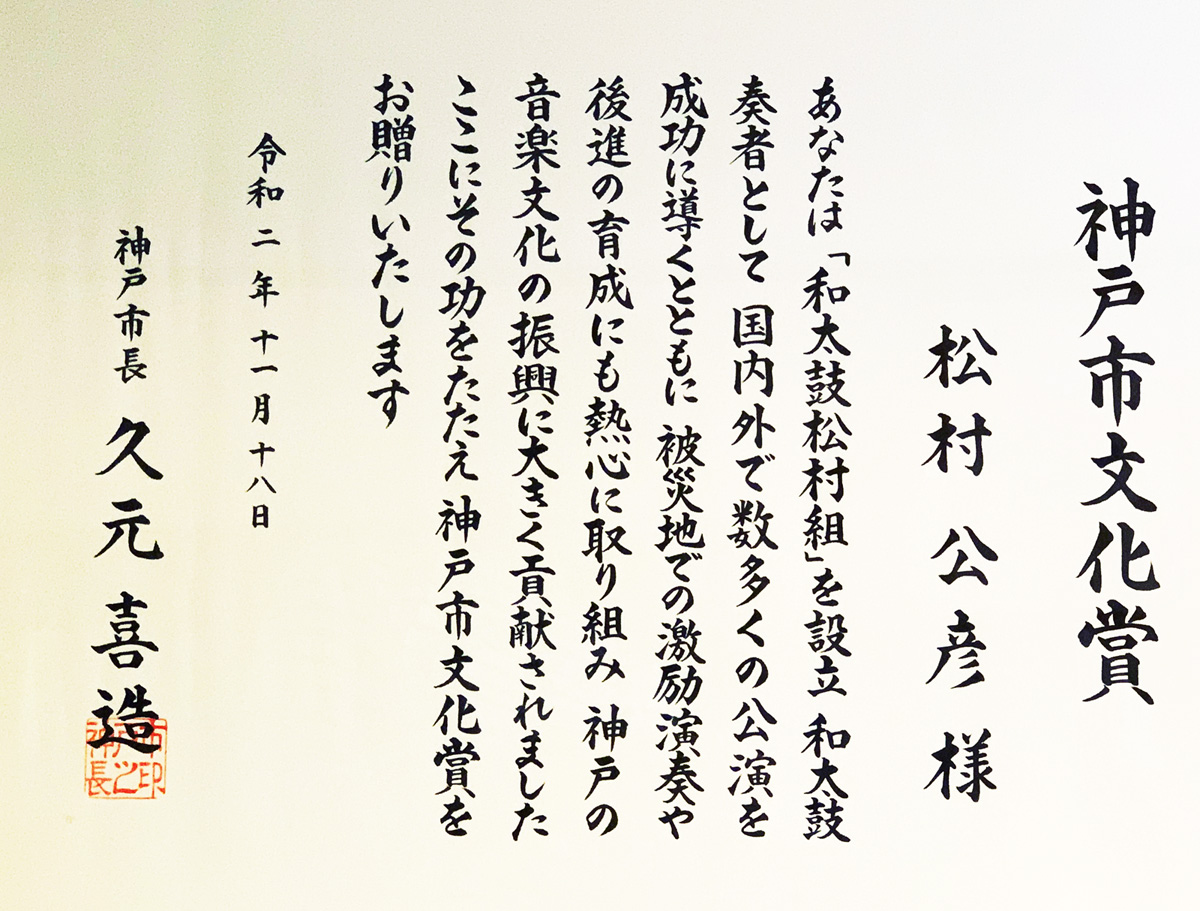 神戸市文化賞
松村 公彦 様
あなたは「和太鼓松村組」を設立 和太鼓
奏者として 国内外で数多くの公演を
成功に導くとともに 被災地での激励演奏や
後進の育成にも熱心に取り組み 神戸の
音楽文化の振興に大きく貢献されました
ここにその功をたたえ 神戸市文化賞を
お贈りいたします
令和二年十一月十八日
神戸市長 久元喜造
市印
戸之
神長